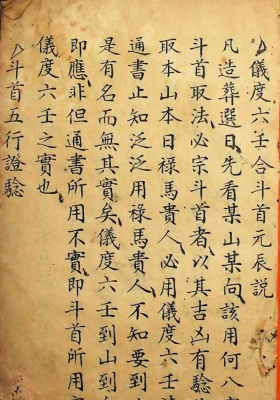 儀度六壬合斗首元辰說
凡造葬選日先看某山某向該用何八
斗首取法必宗斗首者以其吉凶有驗
取本山本日祿馬貴人必用儀度六壬
通書止知泛泛用祿馬貴人不知要到
是有名而無其實矣儀度六壬到山到
即應非但通書所用不實即斗首所用
儀度六壬之實也
斗首五行證驗